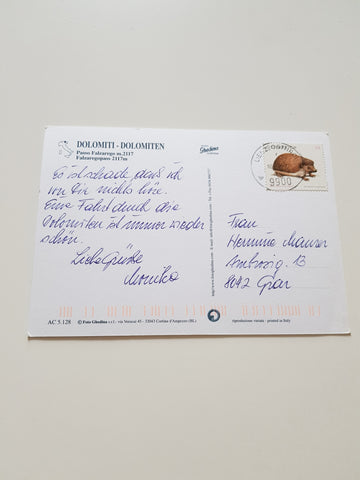 DOLOMITI - DOLOMITEN
Passo Falzarego m.2117
Falzaregopass 2117m
Es ist schade, daß ich
von Dir nichts höre.
Eine Fahrt durch die
Dolomiten ist immer wieder
schön.
Liebe Grüße
Monika
Ghedina
9900
Frau
Hermine Mauser
8042 Graz
AC 5.128
© Foto Ghedina s.r.l. - via Meleres 45 - 32043 Cortina d'Ampezzo (BL)
riproduzione vietata - printed in Italy